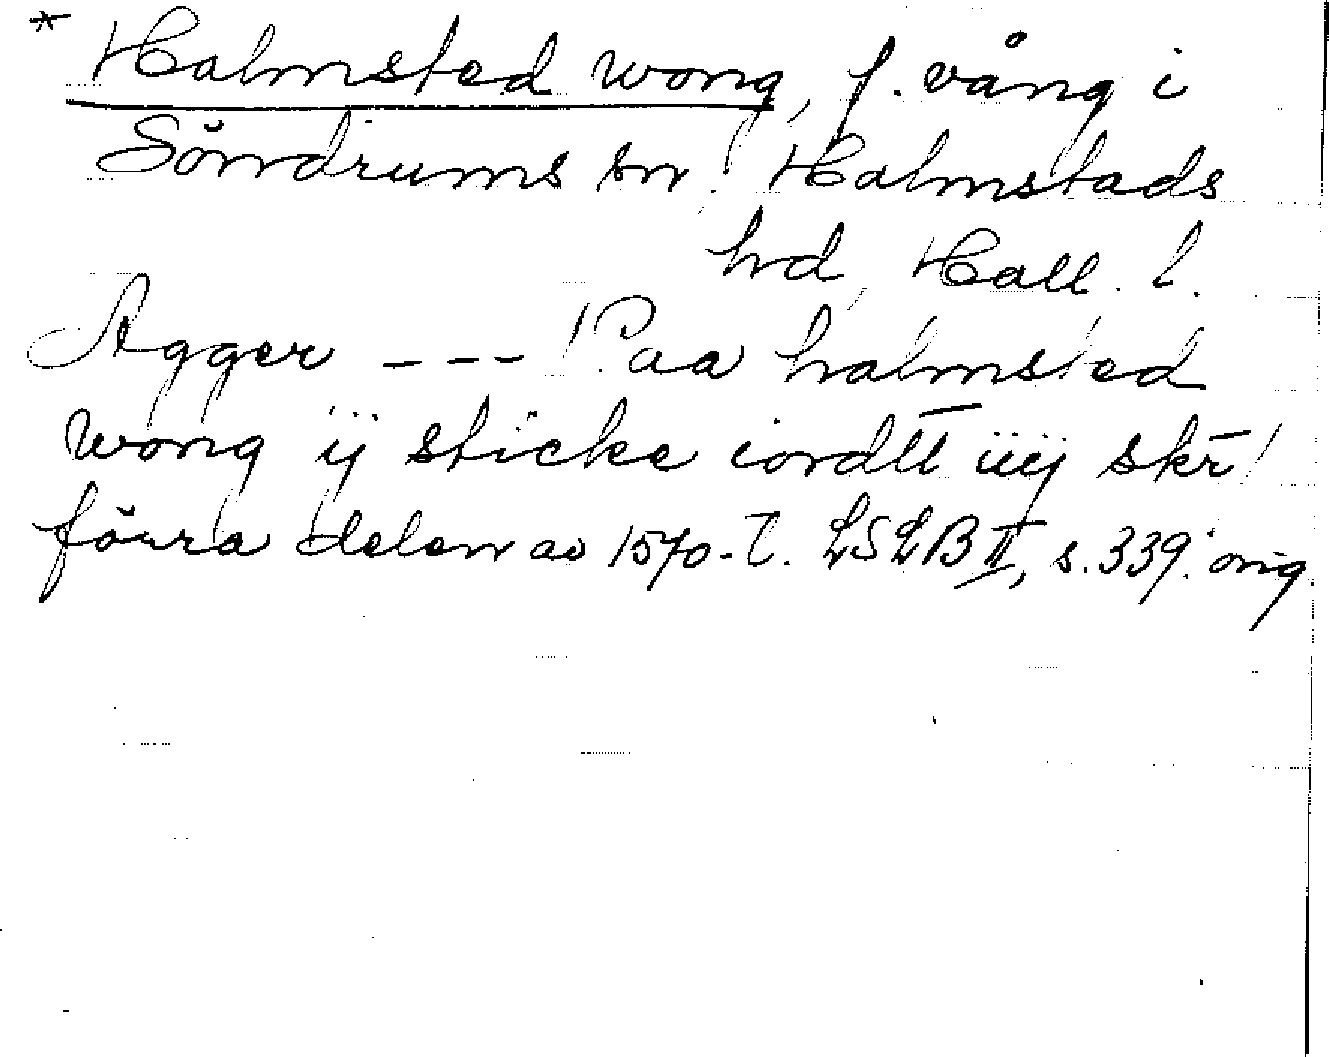 * Halmsted wong, f. vång i
Söndrums sn. Halmstads
hd, Hall. l.
Agger --- Paa halmsted
wong ij sticke iordtt iiij skr̄
förra delen av 1570-t. LSLB II, s. 339. orig.